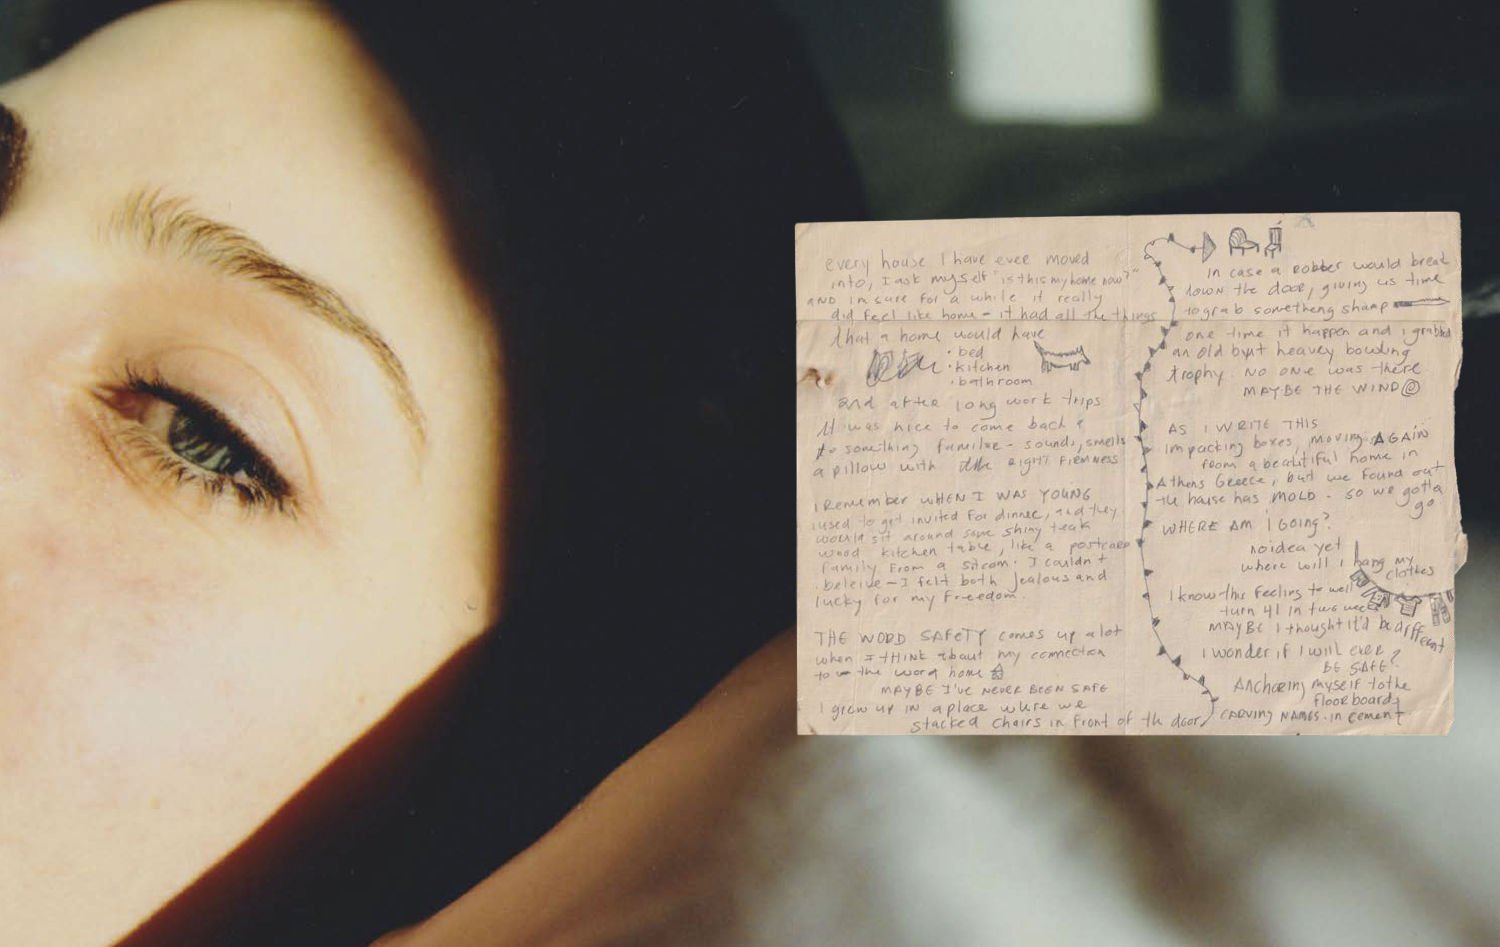 every house I have ever moved
into, I ask myself "is this my home now?"
AND im sure for a while it really
did feel like home - it had all the things
that a home would have
• bed
• kitchen
• bathroom
and after long work trips
It was nice to come back
to something familar - sounds, smells
a pillow with the RIGHT FIRMNESS
I Remember WHEN I WAS YOUNG
i used to get invited for dinner, and they
would sit around some shiny teak
wood kitchen table, like a postcard
family from a sitcom. I couldn't
beleive - I felt both jealous and
lucky for my freedom.
THE WORD SAFETY comes up alot
when I THINK about my connection
to the word home
MAYBE I'VE NEVER BEEN SAFE
I grew up in a place where we
stacked chairs in front of the door,
in case a robber would break
down the door, giving us time
to grab something sharp
one time it happen and i grabbed
an old but heavey bowling
trophy. NO ONE was there
MAYBE THE WIND
AS I WRITE THIS
im packing boxes, moving AGAIN
from a beautiful home in
Athens Greece, but we found out
the house has MOLD - so we gotta
go
WHERE AM i GOING?
no idea yet
where will i hang my
clothes
I know this feeling to well
turn 41 in two
MAYBE I thought it'd be different
I wonder if I will ever
BE SAFE?
Anchoring myself to the
floorboards
CARVING NAMES in cement